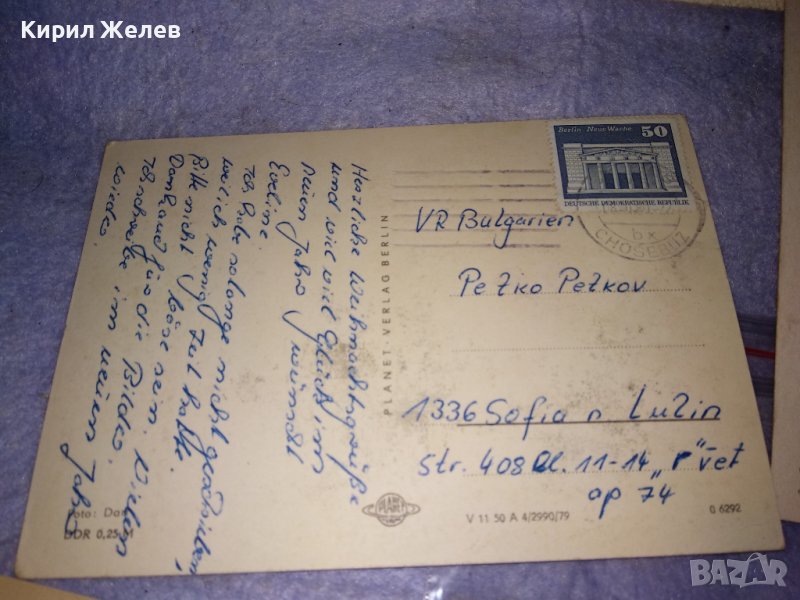 Кирил Желев
Herzliche Weihnachtsgrüße
und viel viel Glück im
neuen Jahr wünscht
Eveline.
Ich habe solange nicht geschrieben,
weil ich wenig Zeit hatte.
Bitte nicht böse sein. Vielen
Dank auch für die Bilder.
Ich schreibe im neuen Jahr
wieder.
Foto:
DDR 0,25 M
PLANET VERLAG BERLIN
PLANET
V 11 50 A 4/2990/79
0 6292
Berlin Neue Wache 50
DEUTSCHE DEMOKRATISCHE REPUBLIK
bx
VR Bulgarien
Petko Petkov
1336 Sofia n. Lulin
Str. 408 Bl. 11-14 „r" vet
ap 74
BAZAR